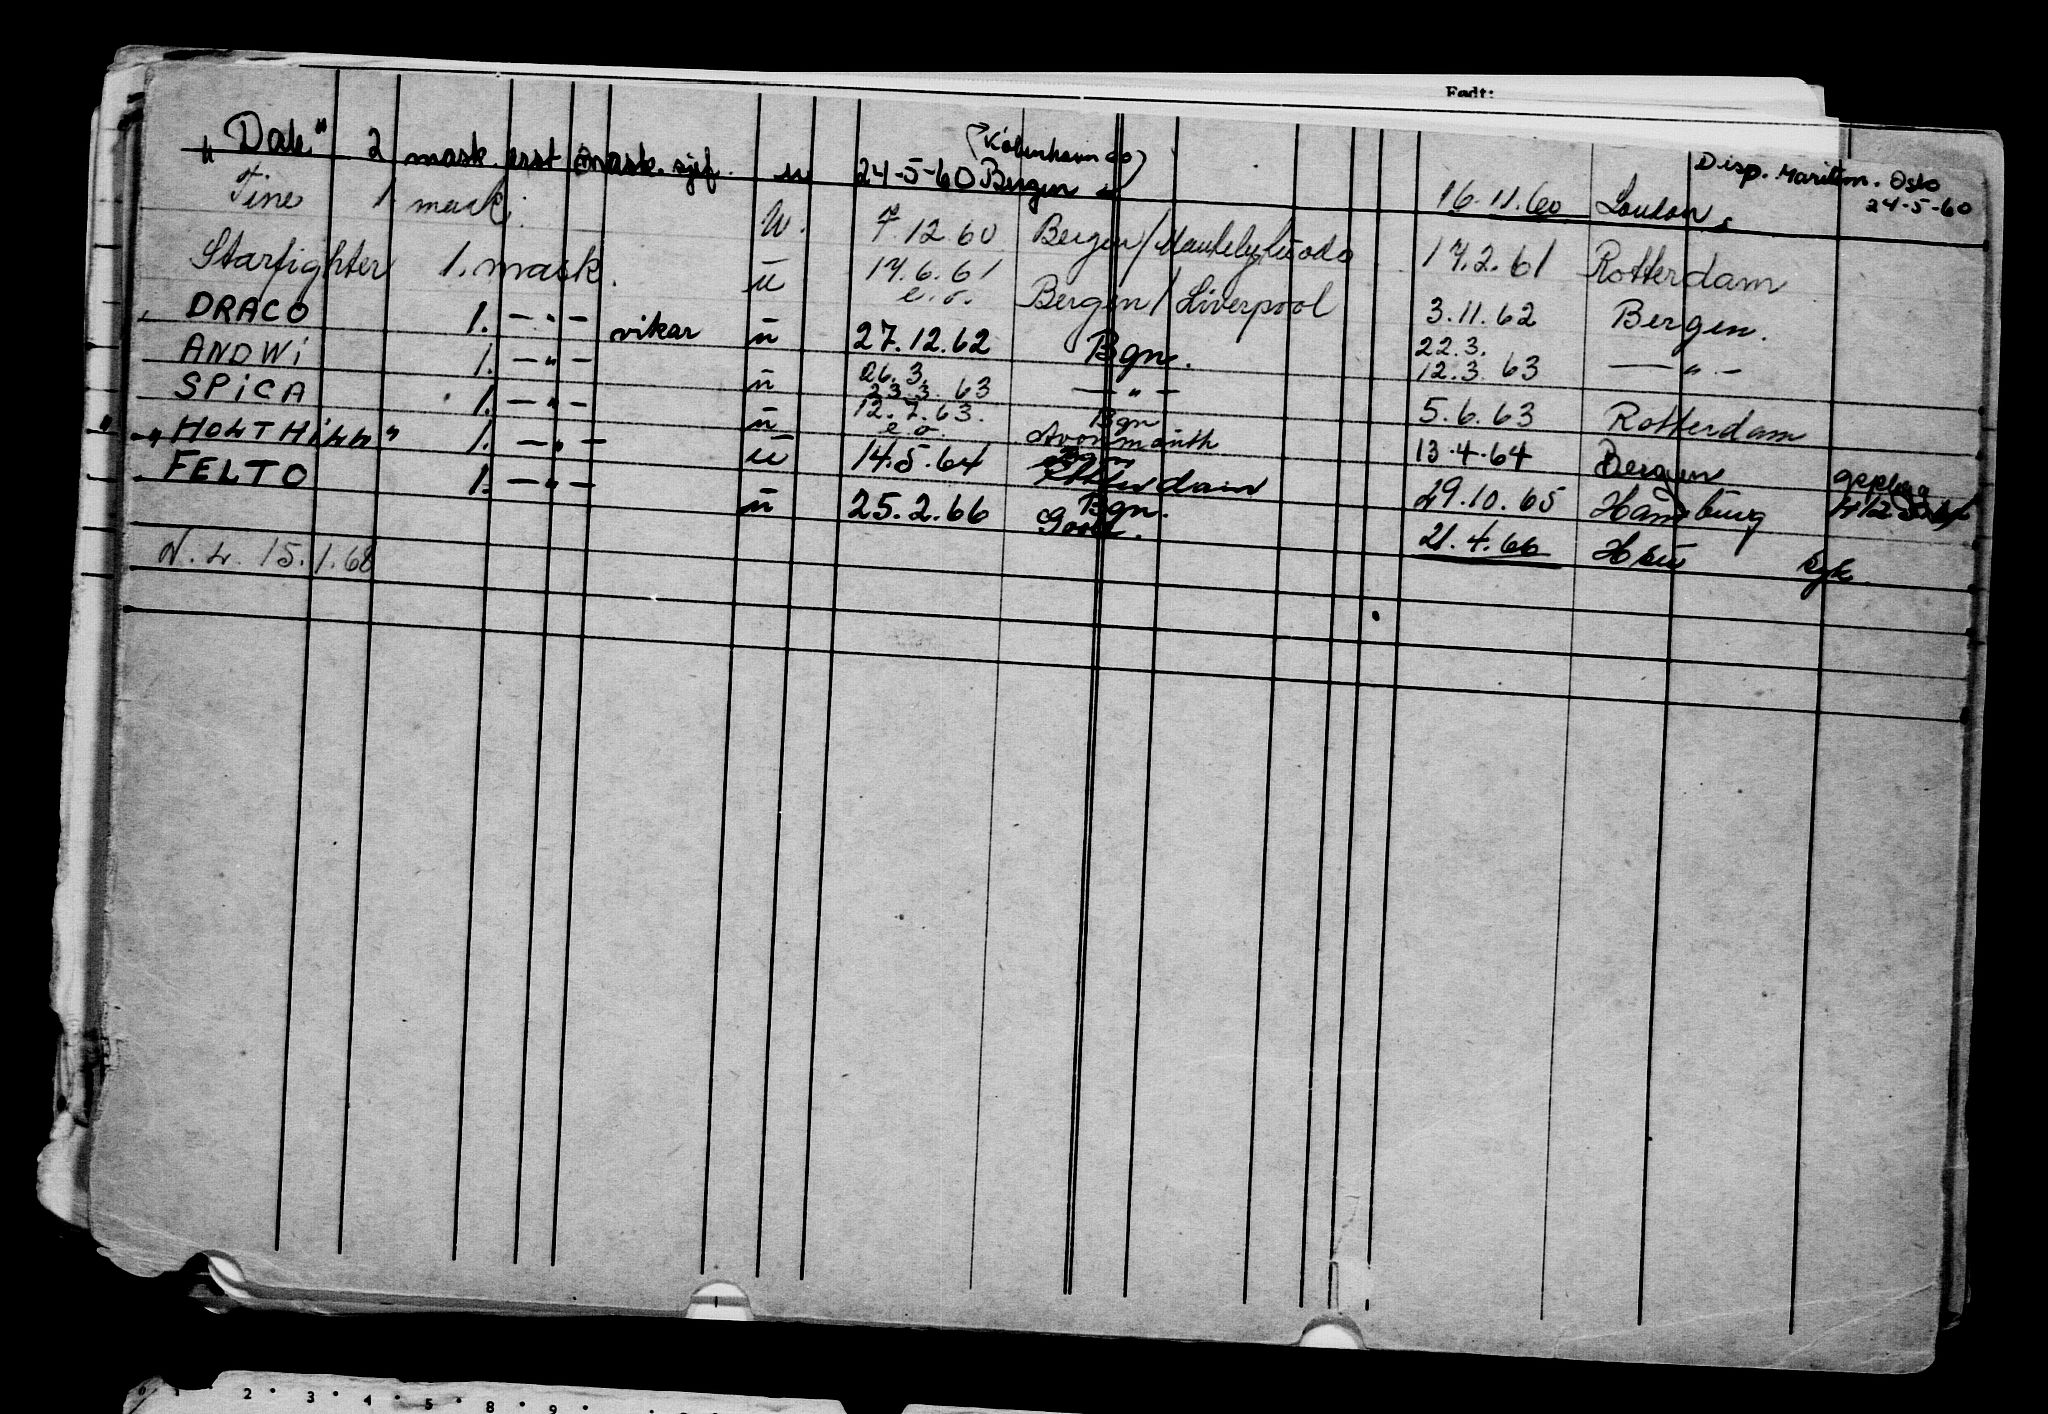 Født:
"Dale" 2 mask. erst mask. sjef. u 24-5-60 Bergen (København do) 16.11.60 London. Disp. Maritim. Oslo 24-5-60
Tine 1 mask. u. 7.12.60 Bergen/ 17.2.61 Rotterdam
Starfighter 1. mask. u 17.6.61 e.o. Bergen/Liverpool 3.11.62 Bergen.
DRACO 1. —"— vikar u 27.12.62 Bgn. 22.3. 12.3.63 —"—
ANDWi 1. —"— u 26.3. 23.3.63 —"— 5.6.63 Rotterdam
SPiCA 1. —"— u 12.7.63. e.o. Bgn Avonmouth 13.4.64 Bergen
"HOLTHiLL" 1. —"— u 14.5.64 Rotterdam 29.10.65 Hamburg
FELTO 1. —"— u 25.2.66 Bgn. 21.4.66 syk.
N.L. 15.1.68
0 1 2 3 4 5 8 9